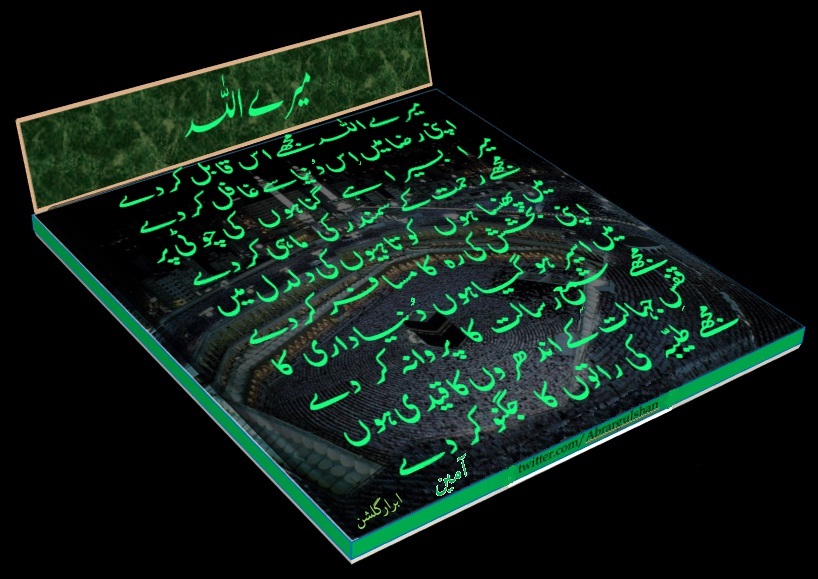 میرے اللہ
میرے اللہ مجھے اس قابل کر دے
اپنی رضا میں اِس دُنیا سے غافل کر دے
میرا بسیرا ہے گناہوں کی چوٹی پر
مجھے رحمت کے سمندر کی ماہی کر دے
میں پھنسا ہوں کوتاہیوں کی دلدل میں
اپنی بخشش کی رہ کا مسافر کر دے
میں اسیر ہو گیا ہوں دُنیاداری کا
مجھے شمعِ رسالت کا پروانہ کر دے
قفسِ جہالت کے اندھروں کا قیدی ہوں
مجھے طیّبہ کی راتوں کا جگنو کر دے
آمین
ابرار گلشن
twitter.com/Abrargulshan